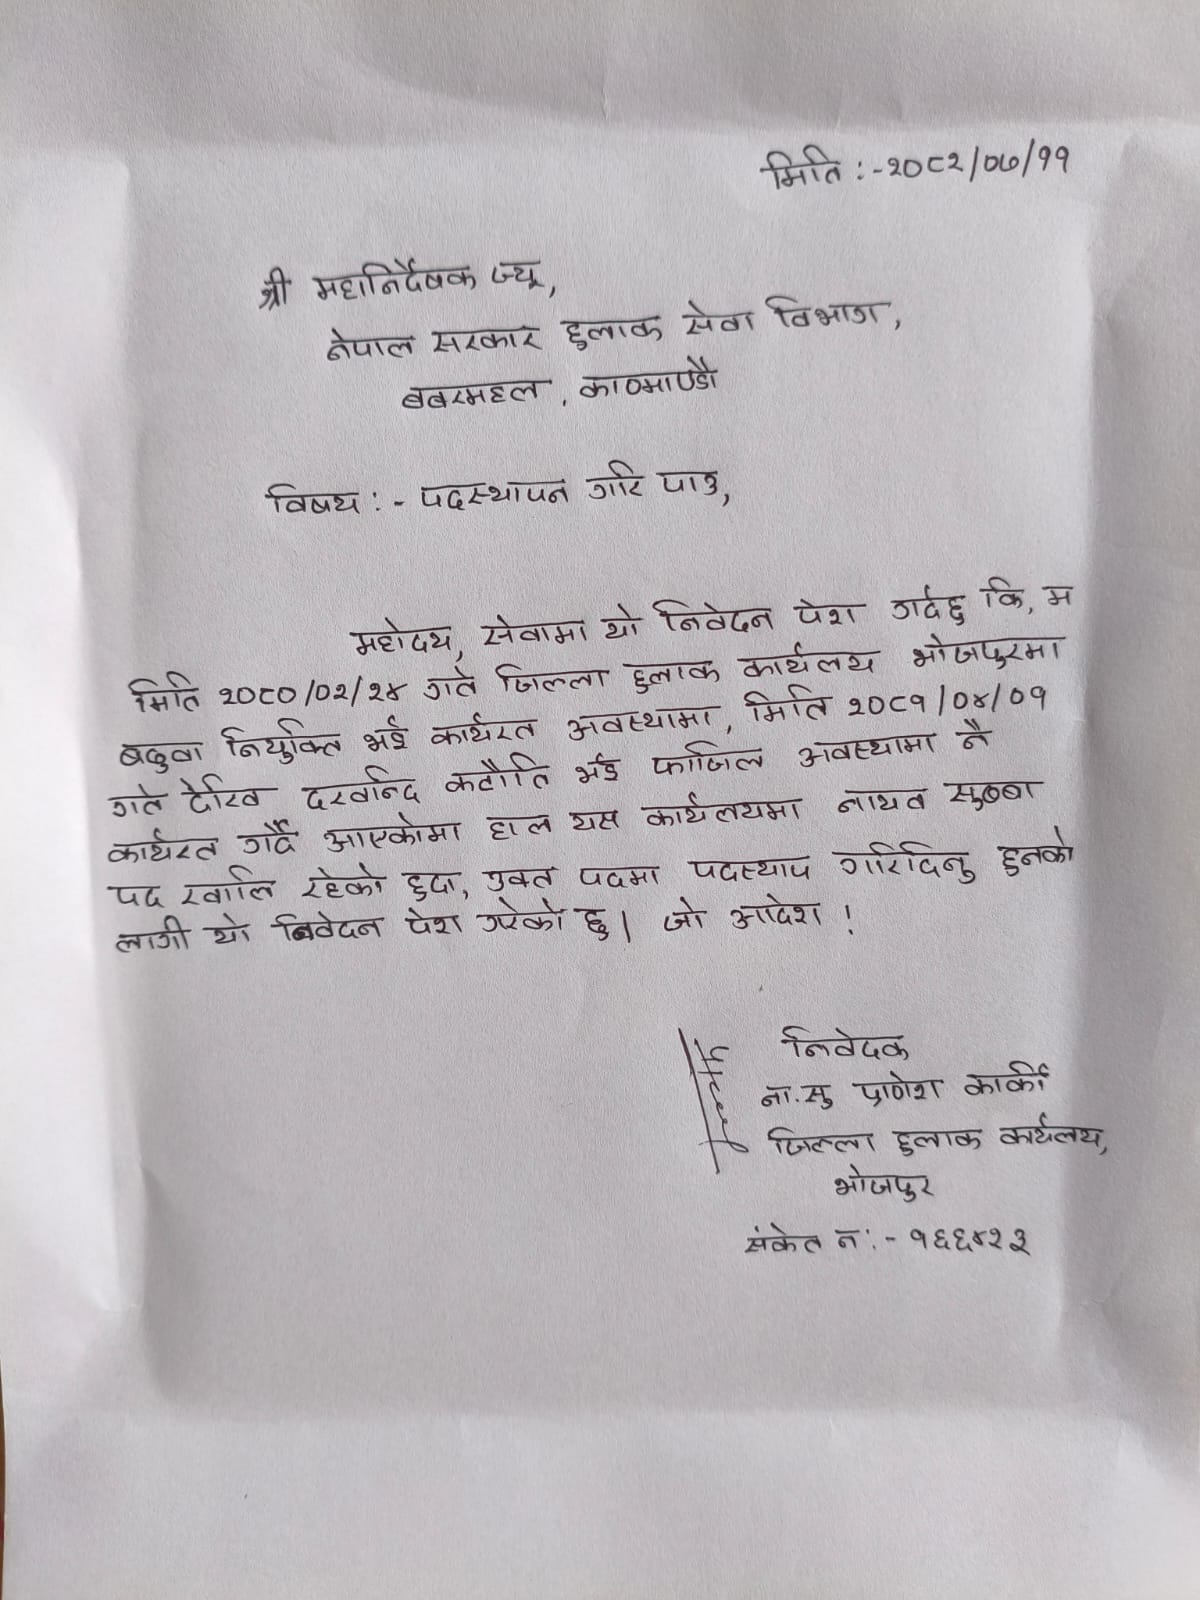 मिति :- २०८२/०७/११
श्री महानिर्देषक ज्यू,
नेपाल सरकार हुलाक सेवा विभाग,
बबरमहल, काठमाण्डौ
विषय :- पदस्थापन गरि पाउ,
महोदय, सेवामा यो निवेदन पेश गर्दछु कि, म
मिति २०८०/०२/२४ गते जिल्ला हुलाक कार्यलय भोजपुरमा
बढुवा नियुक्ति भई कार्यरत अवस्थामा, मिति २०८१/०४/०१
गते देखि दरवन्दि कटौति भई फाजिल अवस्थामा नै
कार्यरत गर्दै आएकोमा हाल यस कार्यलयमा नायव सुब्बा
पद खालि रहेको हुदा, उक्त पदमा पदस्थाप गरिदिनु हुनको
लागी यो निवेदन पेश गरेको छु। जो आदेश !
निवेदक
ना.सु प्राणेश कार्की
जिल्ला हुलाक कार्यलय,
भोजपुर
संकेत न :- १६६४२३